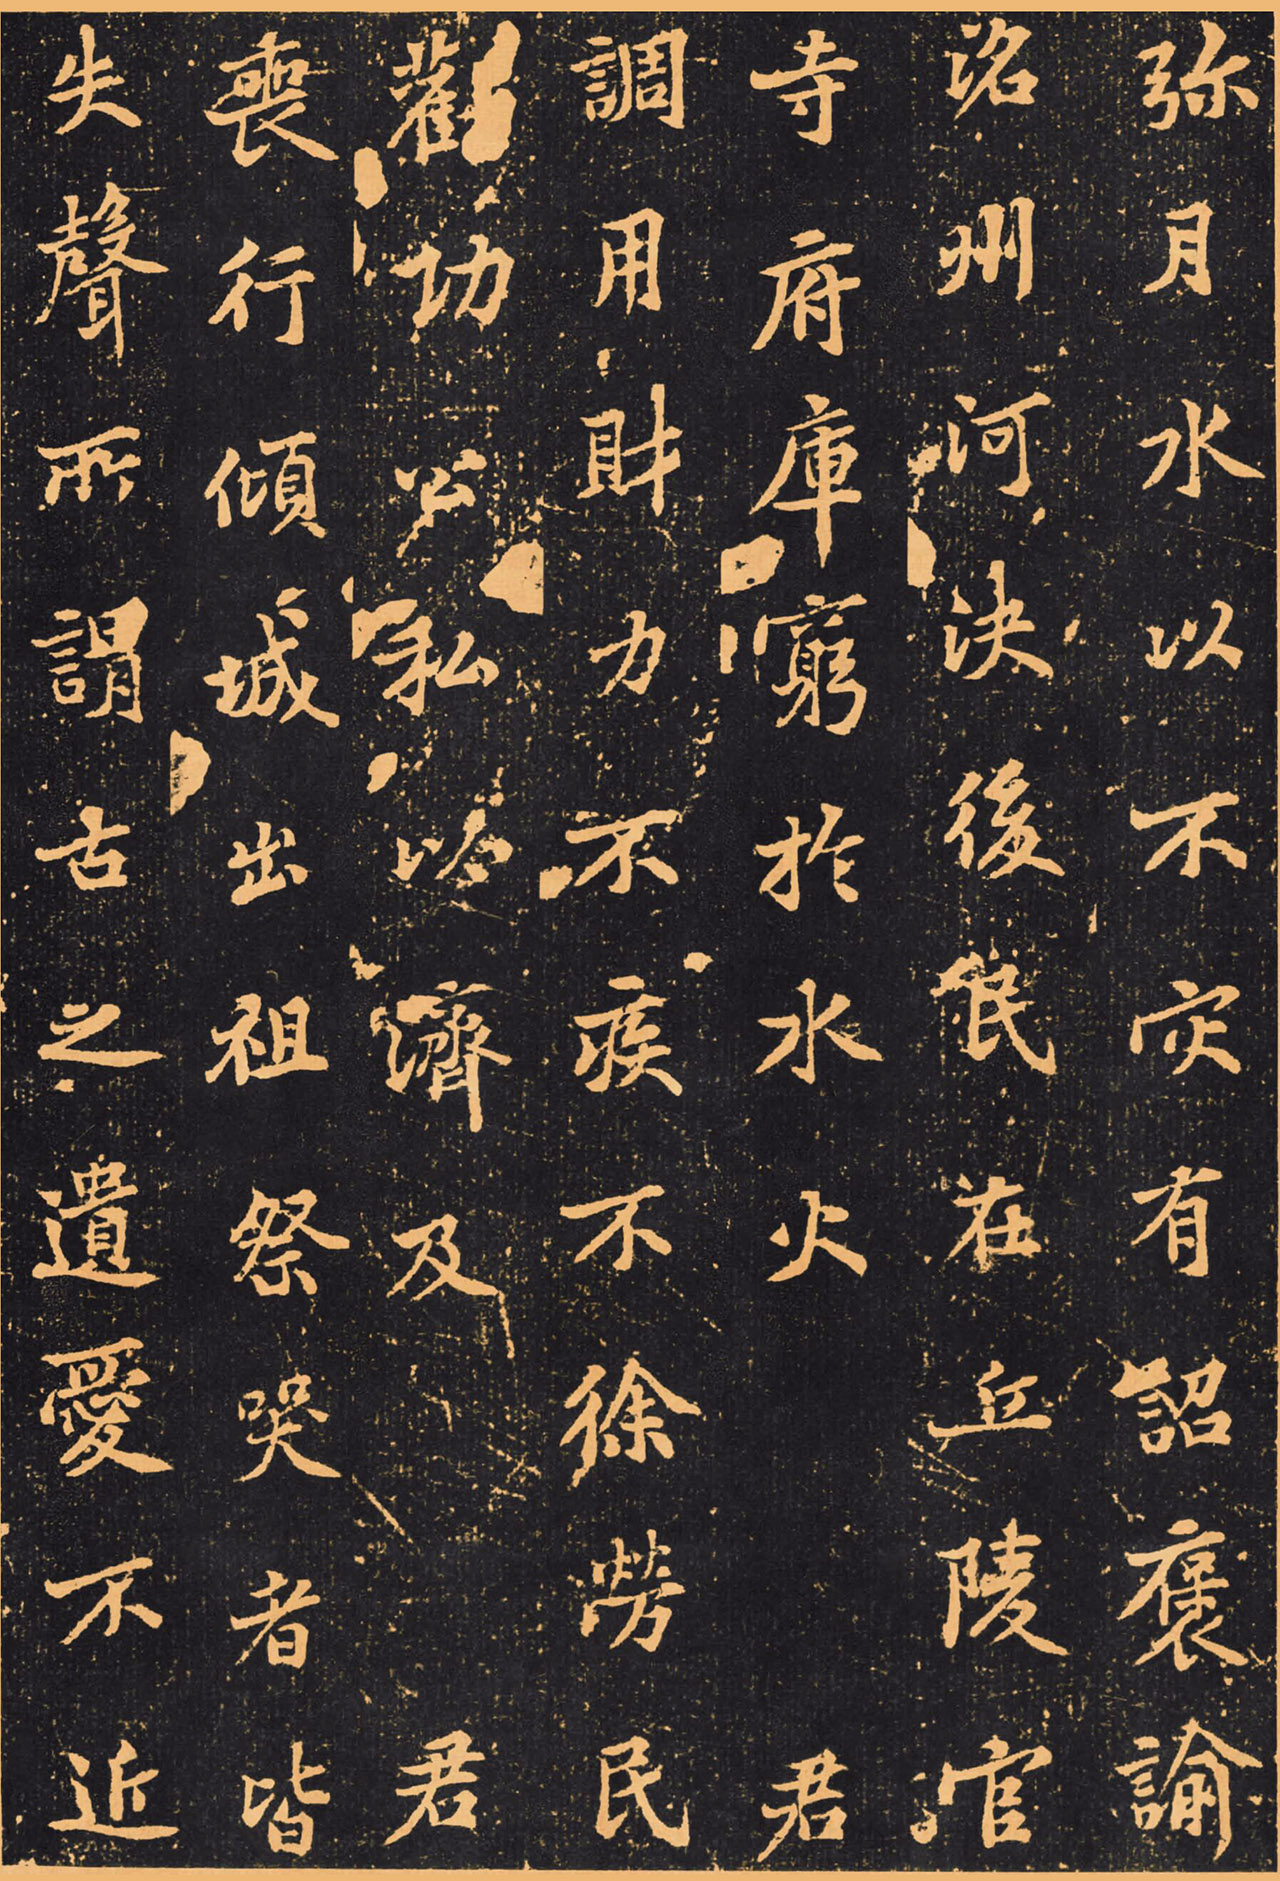 弥月水以不灾有詔褒諭
洺州河決後𡰱在丘陵官
寺府庫窮於水火君
調用財力不疾不徐勞民
勸功公私以濟及君
喪行傾城出祖祭哭者皆
失聲所謂古之遺愛不近